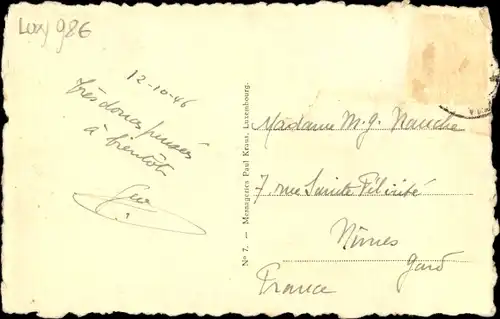 Lux 986
12-10-46
très douces pensées
à bientôt
Geo
N° 7. — Messageries Paul Kraus, Luxembourg.
Madame M. G. Nauche
7, rue Sainte Félicité
Nîmes
Gard
France